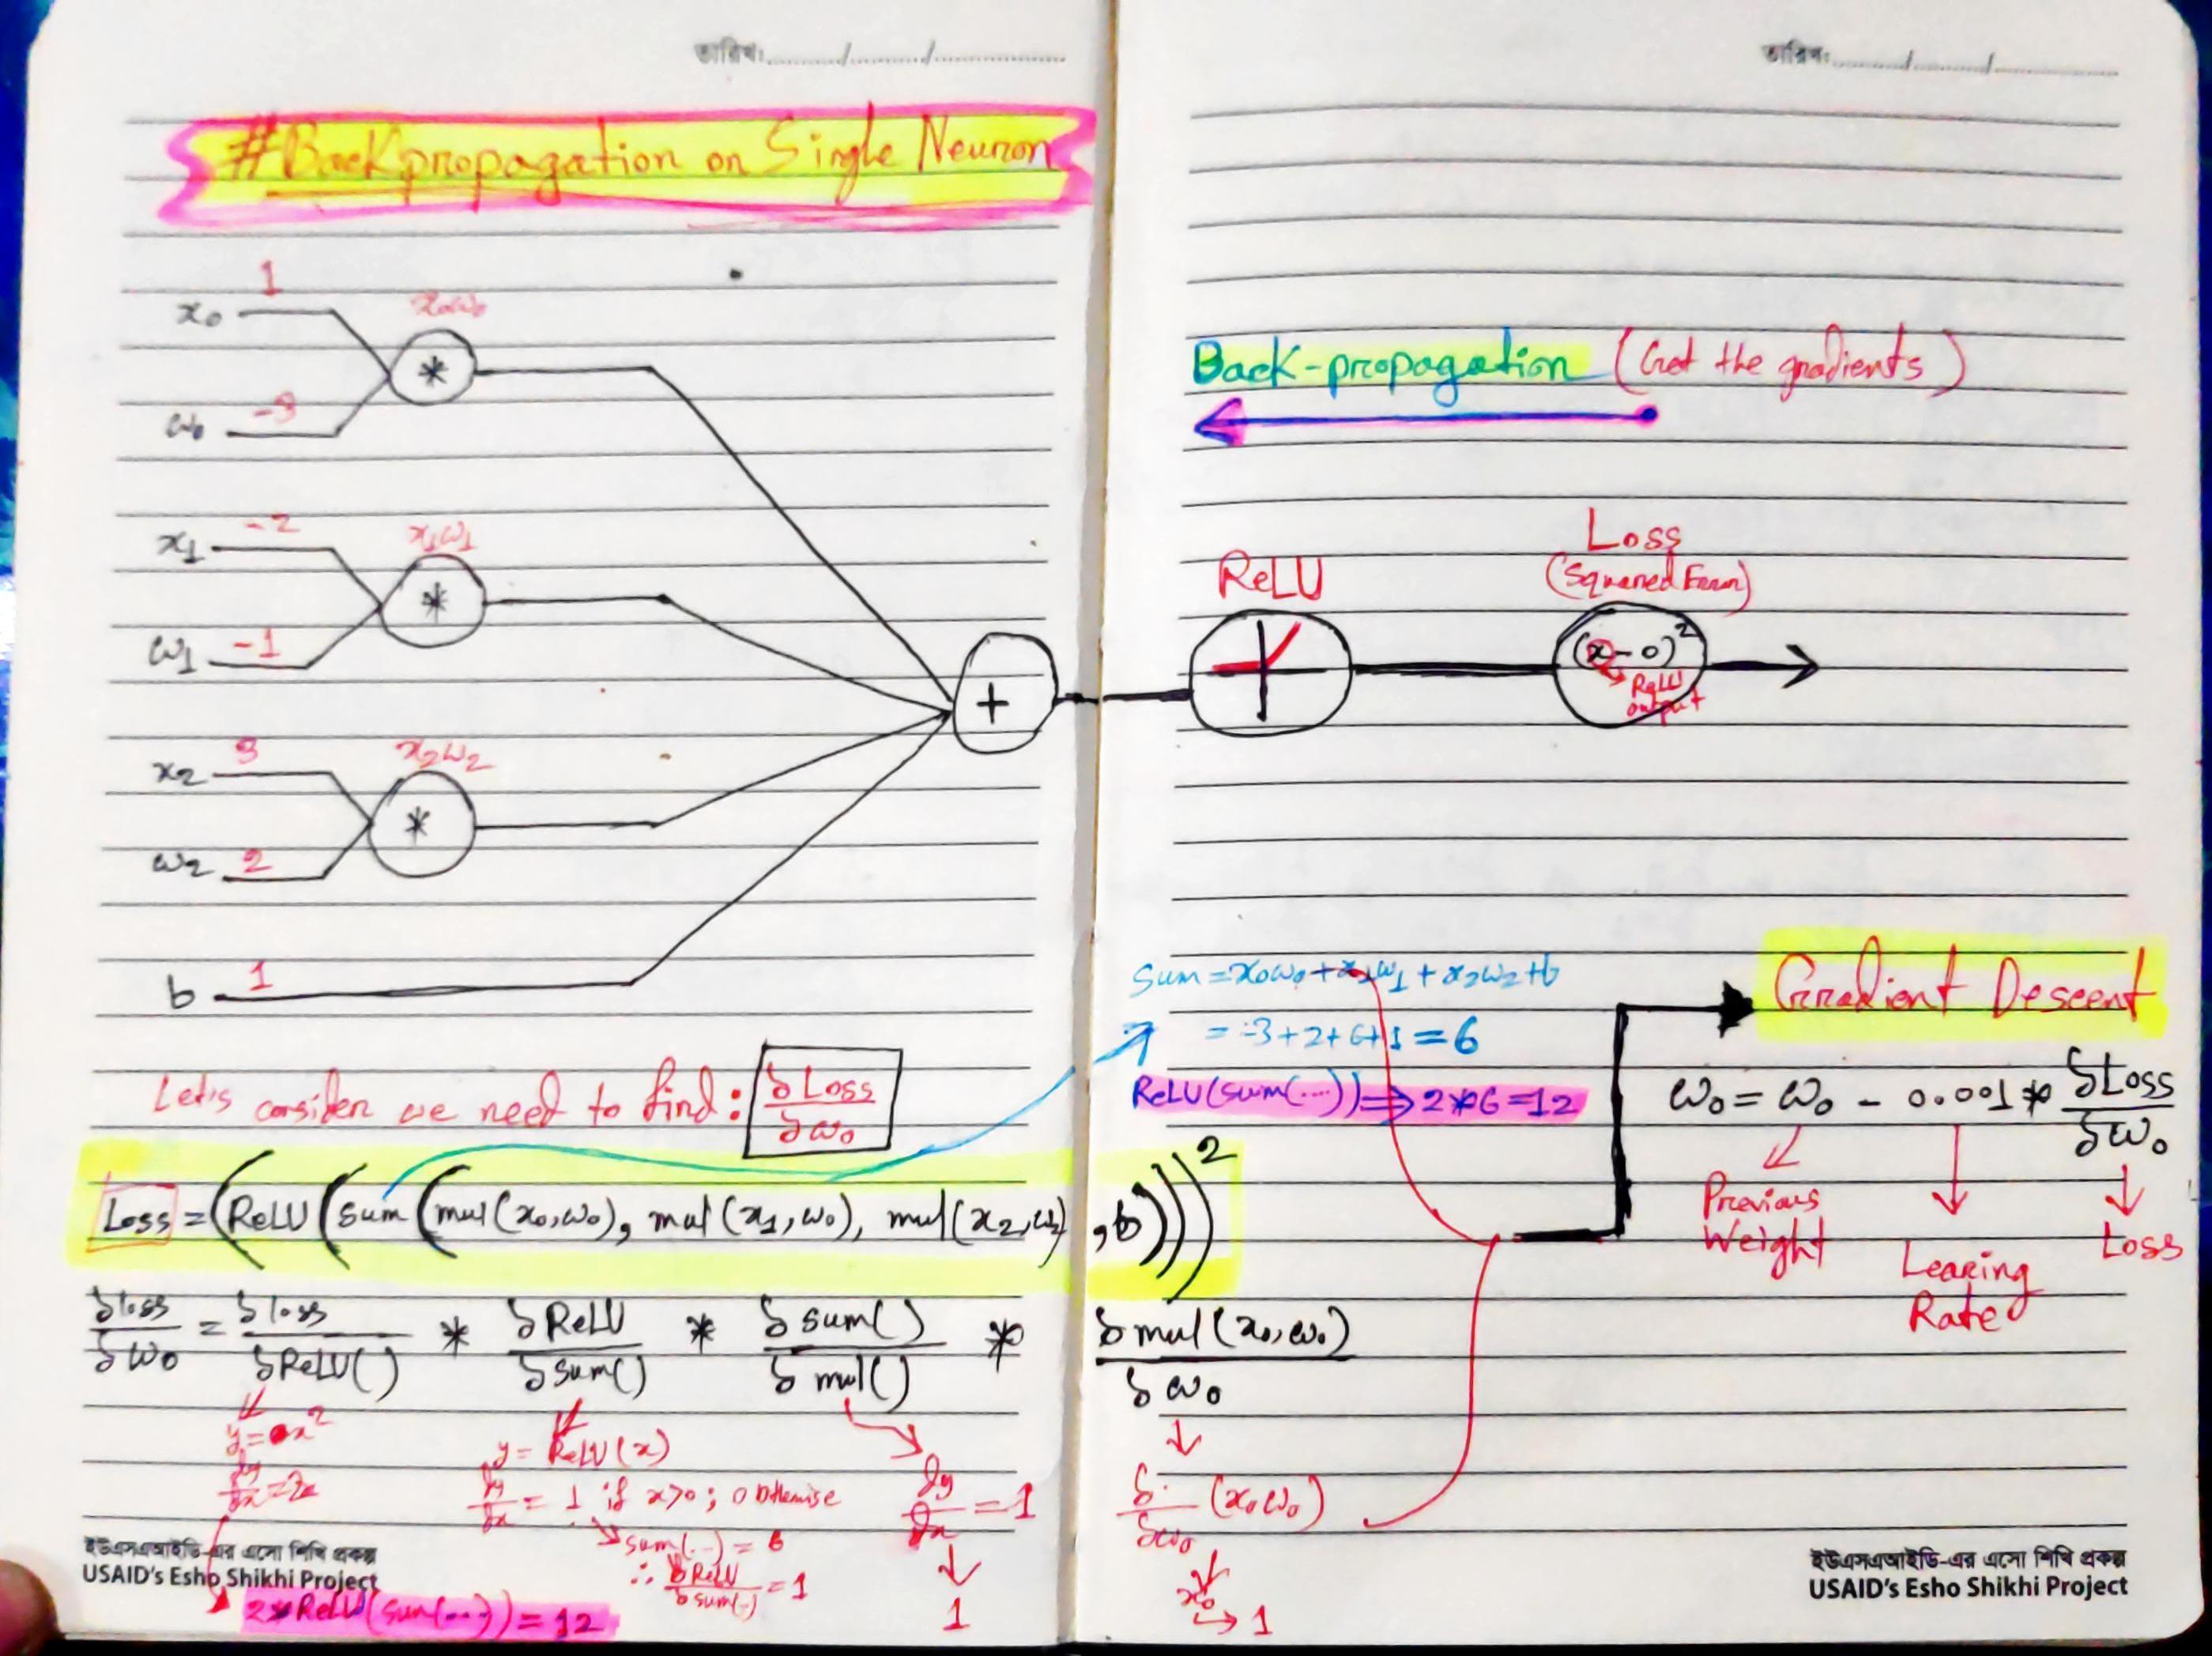 তারিখ:............/............/....................
#Backpropagation on Single Neuron
x₀ 1
x₀ω₀
*
ω₀ -3
x₁ -2
x₁ω₁
*
ω₁ -1
x₂ 3
x₂ω₂
*
ω₂ 2
b 1
+
Let's consider we need to find: δLoss/δω₀
Loss = (ReLU(sum(mul(x₀,ω₀), mul(x₁,ω₀), mul(x₂,ω₂), b)))²
δloss/δω₀ = δloss/δReLU() * δReLU/δsum() * δsum()/δmul() * δmul(x₀,ω₀)/δω₀
y = x²
δy/δx = 2x
2*ReLU(sum(...)) = 12
y = ReLU(x)
δy/δx = 1 if x>0; 0 otherwise
sum(...) = 6
∴ δReLU/δsum(-) = 1
δy/δx = 1
1
δ/δω₀ (x₀ω₀)
x₀
→ 1
ইউএসএআইডি-এর এসো শিখি প্রকল্প
USAID's Esho Shikhi Project
তারিখ:............/............/....................
Back-propagation (Get the gradients)
ReLU
Loss
(Squared Error)
(x-0)²
ReLU
output
Sum = x₀ω₀ + x₁ω₁ + x₂ω₂ + b
= -3+2+6+1 = 6
ReLU(sum(....)) ⇒ 2*6=12
Gradient Descent
ω₀ = ω₀ - 0.001 * δLoss/δω₀
Previous
Weight
Learing
Rate
Loss
ইউএসএআইডি-এর এসো শিখি প্রকল্প
USAID's Esho Shikhi Project